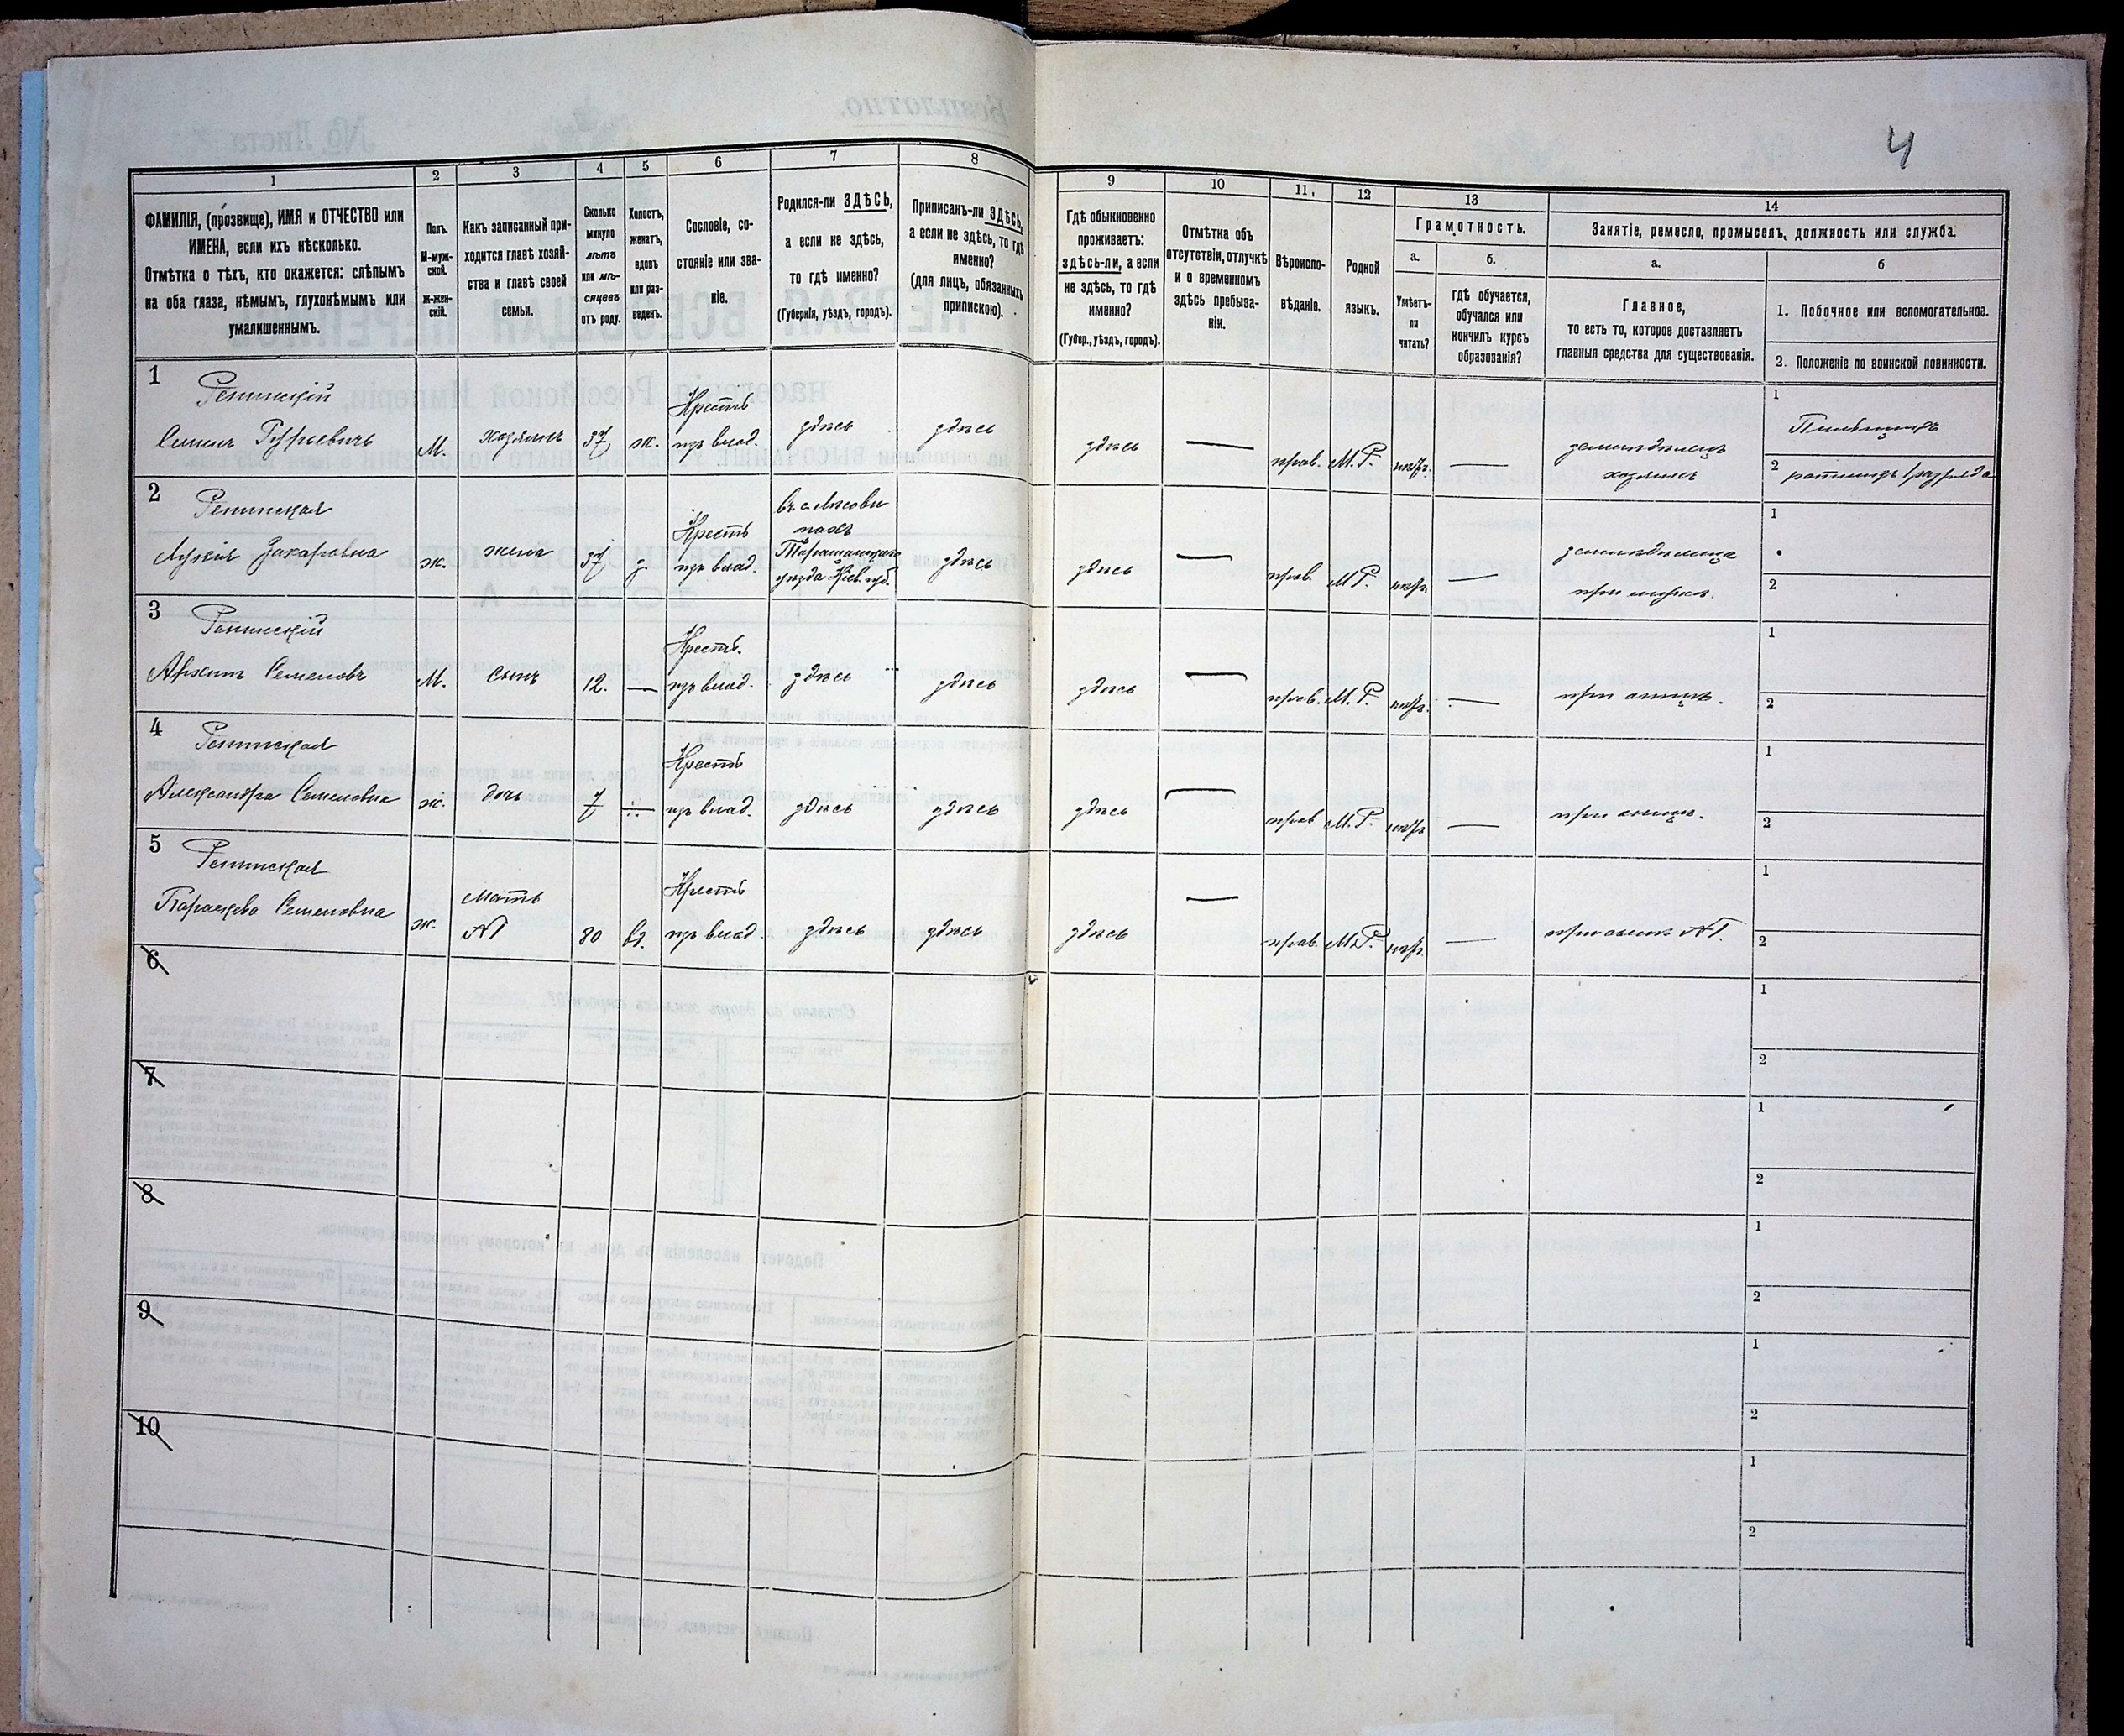 4
1
2
3
4
5
6
7
8
9
10
11.
12
13
14
ФАМИЛІЯ, (прозвище), ИМЯ и ОТЧЕСТВО или
ИМЕНА, если ихъ нѣсколько.
Отмѣтка о тѣхъ, кто окажется: слѣпымъ
на оба глаза, нѣмымъ, глухонѣмымъ или
умалишеннымъ.
Полъ.
М-муж-
ской.
ж-жен-
скій.
Какъ записанный при-
ходится главѣ хозяй-
ства и главѣ своей
семьи.
Сколько
минуло
лѣтъ
или мѣ-
сяцевъ
отъ роду.
Холостъ,
женатъ,
вдовъ
или раз-
веденъ.
Сословіе, со-
стояніе или зва-
ніе.
Родился-ли ЗДѢСЬ,
а если не здѣсь,
то гдѣ именно?
(Губернія, уѣздъ, городъ).
Приписанъ-ли ЗДѢСЬ,
а если не здѣсь, то гдѣ
именно?
(для лицъ, обязанныхъ
припискою).
Гдѣ обыкновенно
проживаетъ:
здѣсь-ли, а если
не здѣсь, то гдѣ
именно?
(Губер., уѣздъ, городъ).
Отмѣтка объ
отсутствіи, отлучкѣ
и о временномъ
здѣсь пребыва-
ніи.
Вѣроиспо-
вѣданіе.
Родной
языкъ.
Грамотность.
а.
б.
Умѣетъ-
ли
читать?
гдѣ обучается,
обучался или
кончилъ курсъ
образованія?
Занятіе, ремесло, промыселъ, должность или служба.
а.
б
Главное,
то есть то, которое доставляетъ
главныя средства для существованія.
1. Побочное или вспомогательное.
2. Положеніе по воинской повинности.
1
Семенъ Гурьевичъ
М.
хозяинъ
37
ж.
Крестъ
изъ влад.
здѣсь
здѣсь
здѣсь
—
прав.
М.Р.
негр.
—
земледѣлецъ
хозяинъ
1
2 ратникъ I разряда
2
Захаровна
ж.
жена
37
з.
Крестъ
изъ влад.
Таращанскаго
уѣзда Кіев. губ.
здѣсь
здѣсь
—
прав.
М.Р.
негр.
—
земледѣлица
при мужѣ.
1
2
3
Архипъ Семеновъ
М.
сынъ
12.
—
Крестъ.
изъ влад.
здѣсь
здѣсь
здѣсь
—
прав.
М.Р.
негр.
—
при отцѣ.
1
2
4
Александра Семеновна
ж.
дочь
7
—
Крестъ
изъ влад.
здѣсь
здѣсь
здѣсь
—
прав
М.Р.
негр
—
при отцѣ.
1
2
5
Параскева Семеновна
ж.
мать
№1
80
вд.
Крестъ
изъ влад.
здѣсь
здѣсь
здѣсь
—
прав
М.Р.
негр.
—
при сынѣ №1.
1
2
6
1
2
7
1
2
8
1
2
9
1
2
10
1
2